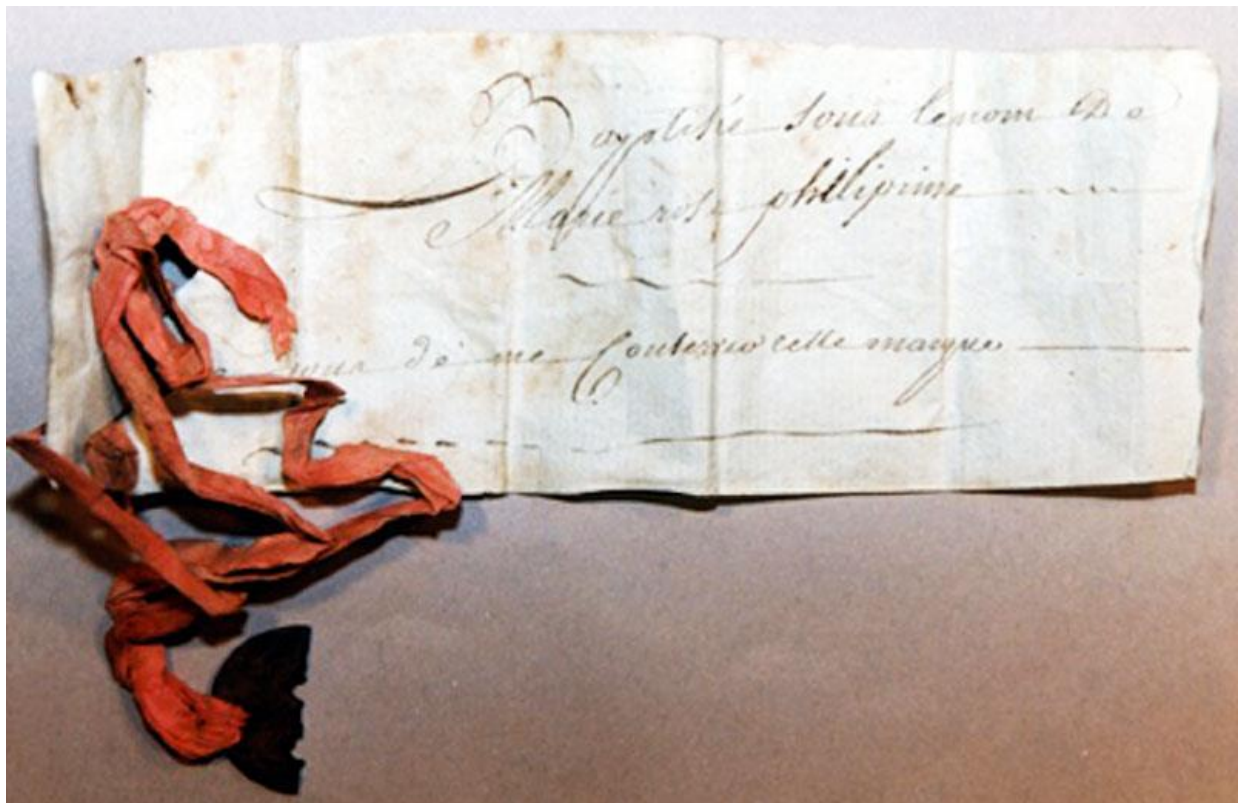 Baptisée sous le nom De
Marie rose philipine
de me Conserver cette marque